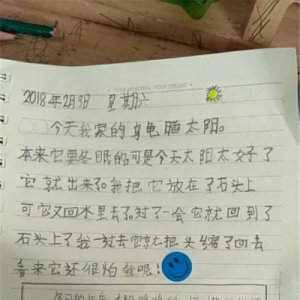 2018年2月3日 星期六
今天我家的乌龟晒太阳。
本来它要冬眠的可是今天太阳太好了
它就出来了我把它放在了石头上
可它又回水里去了过了一会它就回到了
石头上了我一过去它就把头缩了回去
看来它还很怕我呢!